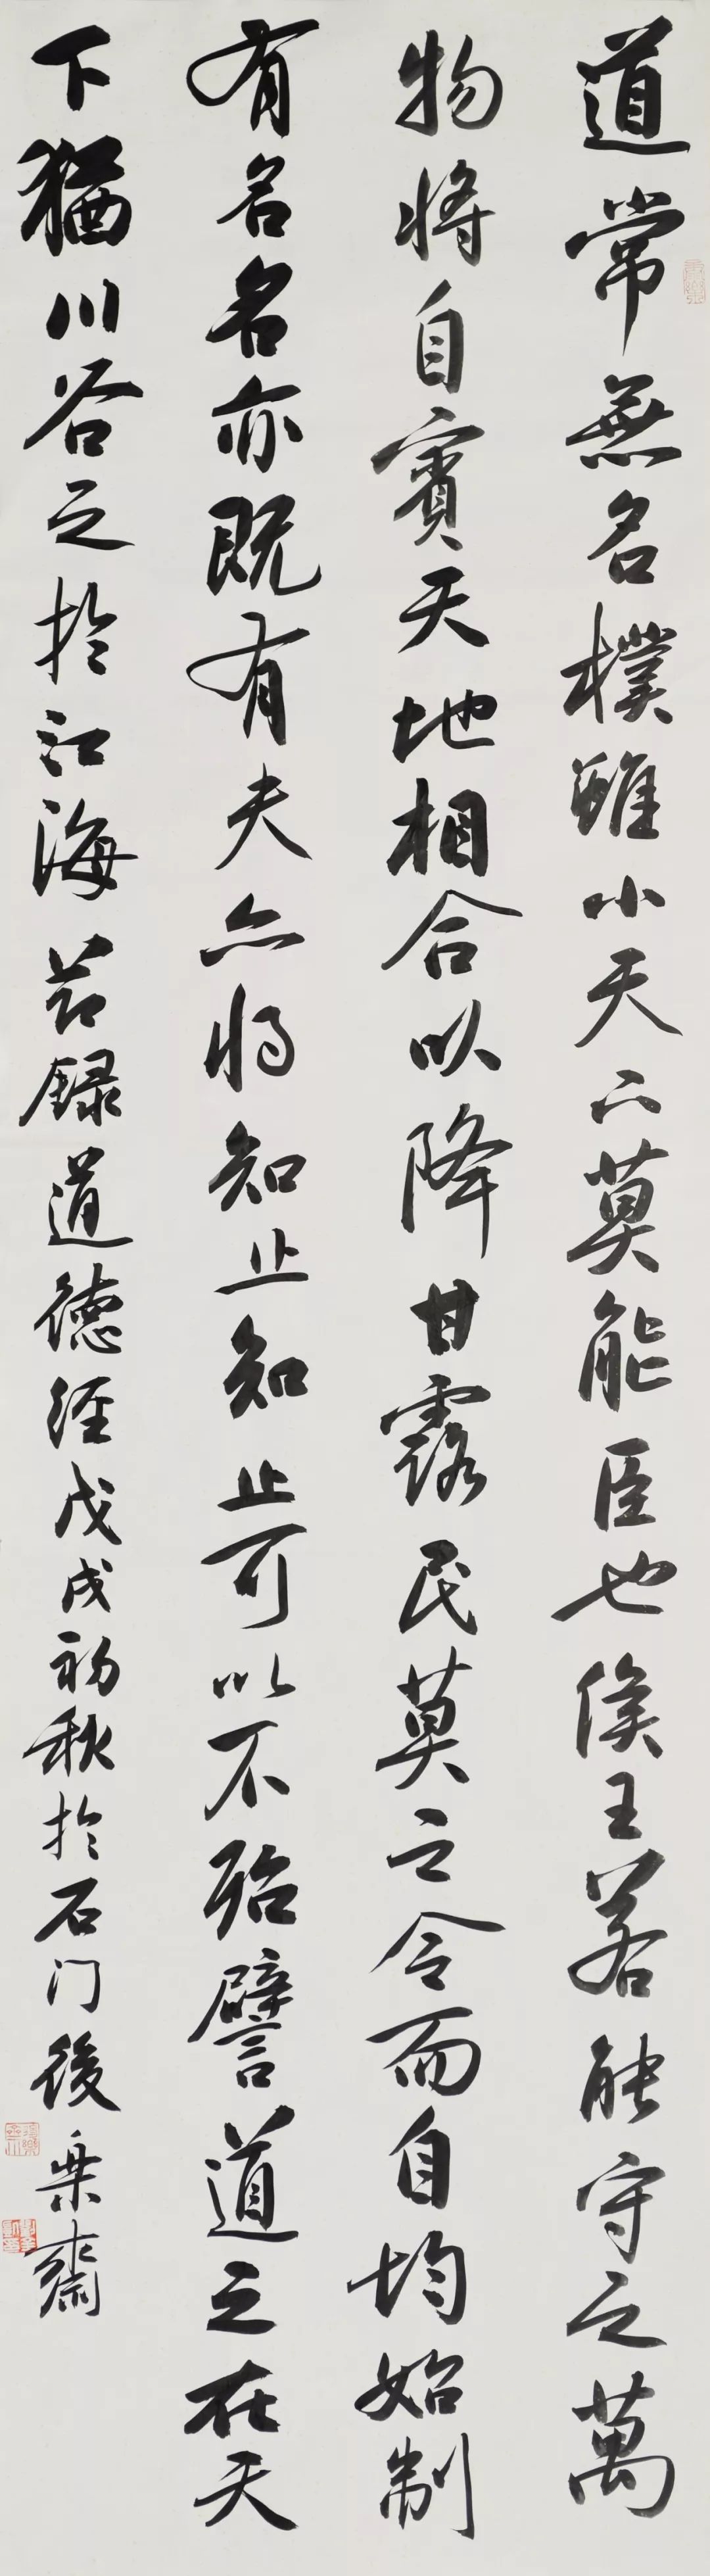 道常無名樸雖小天下莫能臣也侯王若能守之萬
物將自賓天地相合以降甘露民莫之令而自均始制
有名名亦既有夫亦將知止知止可以不殆譬道之在天
下猶川谷之於江海 節錄道德經戊戌初秋於石门後樂齋